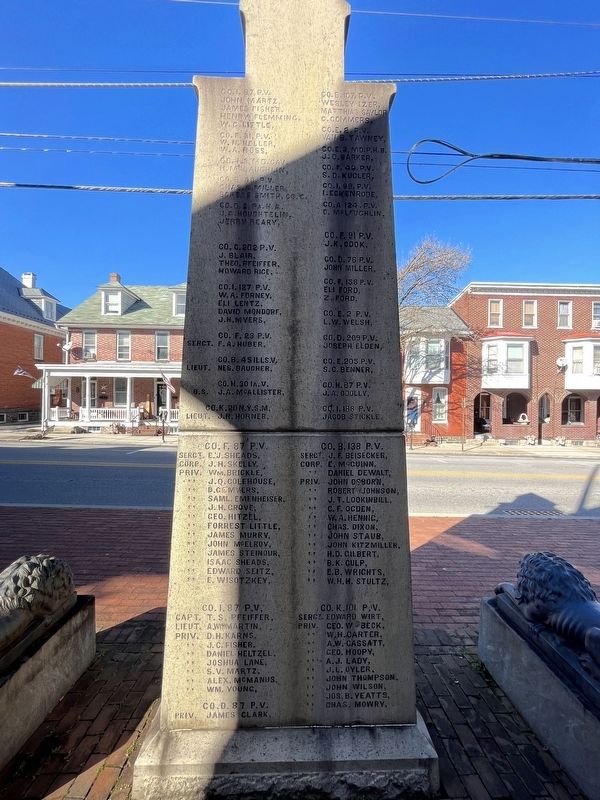 CO. I. 87 P.V.
JOHN MARTZ,
JAMES FISHER,
HENRY FLEMMING,
W. C. LITTLE,
W. N. HELLER,
W. A. ROSS,
MILLER,
SMITH, CO. C.
J. E. HOUGHTELIN,
JERRY READY,
CO. G. 202 P.V.
J. BLAIR,
THEO. PFEIFFER,
HOWARD RICE,
CO. I. 127 P.V.
W. A. FORNEY,
ELI LENTZ,
DAVID MONDORF,
J. H. MYERS,
CO. F. 23 P.V.
SERGT. F. A. J. HUBER,
CO. B. 45 ILLS.V.
LIEUT. NES. DAUGHER,
CO. H. 30 IA.V.
O.S. J. A. McALLISTER,
CO. K. 20 N.Y.S.M.
LIEUT. J. R. HORNER.
CO. B. 107 P.V.
WESLEY IZER,
MATTHIAS SAYLOR
C. COMMERS,
CO. E. 2 P.V.
TAWNEY,
CO. E. 3 MD.P.H.B.
J. O. BARKER,
CO. F. 49 P.V.
S. D. KUGLER,
CO. I. 99 P.V.
I. ECKENRODE,
CO. A. 124 P.V.
C. McLAUGHLIN,
CO. F. 91 P.V.
J. K. COOK,
CO. D. 76 P.V.
JOHN MILLER,
CO. F. 138 P.V.
ELI FORD,
Z. FORD,
CO. E. 2 P.V.
L. W. WELSH,
CO. D. 209 P.V.
JOSEPH ELDEN,
CO. E. 205 P.V.
S. C. BENNER,
CO. H. 87 P.V.
J. A. CODLLY,
CO. I. 188 P.V.
JACOB STICKLE.
CO. F. 87 P.V.
SERGT. E. J. SHEADS,
CORP. J. H. SKELLY,
PRIV. WM. BRICKLE,
" J. Q. COLEHOUSE,
" D. C. MYERS,
" SAML. EMENHEISER,
" J. H. GROVE,
" GEO. HITZEL,
" FORREST LITTLE,
" JAMES MURRY,
" JOHN McELROY,
" JAMES STEINOUR,
" ISAAC SHEADS,
" EDWARD SEITZ,
" E. WISOTZKEY,
CO. I. 87 P.V.
CAPT. T. S. PFEIFFER,
LIEUT. A. W. MARTIN,
PRIV. D. H. KARNS,
" J. C. FISHER,
" DANIEL HELTZEL,
" JOSHUA LANE,
" S. V. MARTZ,
" ALEX. McMANUS,
" WM. YOUNG,
CO. D. 87 P.V.
PRIV. JAMES CLARK.
CO. B. 138 P.V.
SERGT. J. F. BEISECKER,
CORP. E. McGUINN,
" DANIEL DEWALT,
PRIV. JOHN OSBORN,
" ROBERT JOHNSON,
" J. T. LOOKINBILL,
" C. F. OGDEN,
" W. A. HENNIG,
" CHAS. DIXON,
" JOHN STAUB,
" JOHN KITZMILLER,
" H. D. GILBERT,
" B. K. CULP,
" E. B. WRIGHTS,
" W. H. H. STULTZ,
CO. K. 101 P.V.
SERGT. EDWARD WIRT,
PRIV. GEO. W. BECK,
" W. H. CARTER,
" A. W. CASSATT,
" GEO. HOOPY,
" A. J. LADY,
" J. L. OYLER,
" JOHN THOMPSON,
" JOHN WILSON,
" JOS. B. YEATTS,
" CHAS. MOWRY,